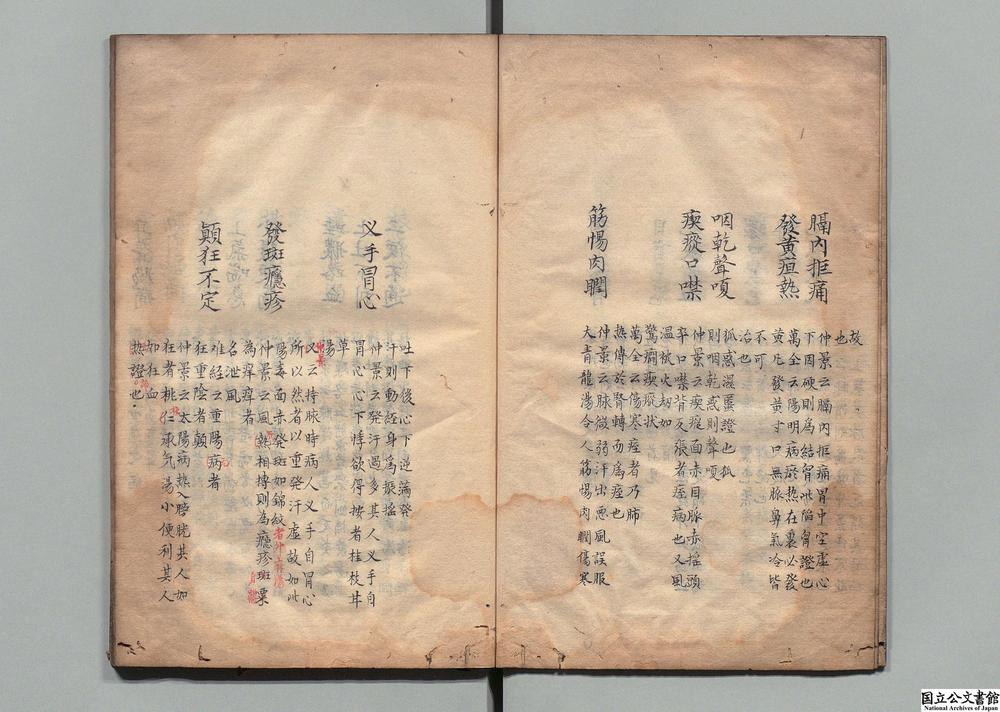 故
也
膈內拒痛
仲景云膈內拒痛胃中空虛心
下因硬則為結胷此陷胷證也
發黃疸熱
萬全云陽明病瘀熱在裏必發
黃凡發黃寸口無脉鼻氣冷皆
不可
治也
咽乾聲嗄
狐惑濕䘌證也狐
則咽乾惑則聲嗄
瘈瘲口噤
仲景云瘈瘲面赤目脉赤搖頭
卒口噤背反張者痓病也又風
温被火刼如
驚癇瘈瘲狀
萬全云傷寒痓者乃肺
熱傳於腎轉而為痓也
筋惕肉瞤
仲景云脉微弱汗出惡風誤服
大青龍湯令人筋惕肉瞤傷寒
吐下後心下逆滿發
汗則動經身為振搖
叉手冒心
仲景云發汗過多其人叉手自
冒心心下悸欲得按者桂枝甘
草
湯
又云持脉時病人叉手自冒心
所以然者以重發汗虛故如此
發斑癮疹
陽毒面赤發斑如錦紋
仲景云風熱相搏則為癮疹斑粟
為痒痒者
名泄風
顛狂不定
難經云重陽病者
狂重陰者顛
仲景云太陽病熱入膀胱其人如
狂者桃仁承气湯小便利其人
如狂血
熱證也
国立公文書館
National Archives of Japan